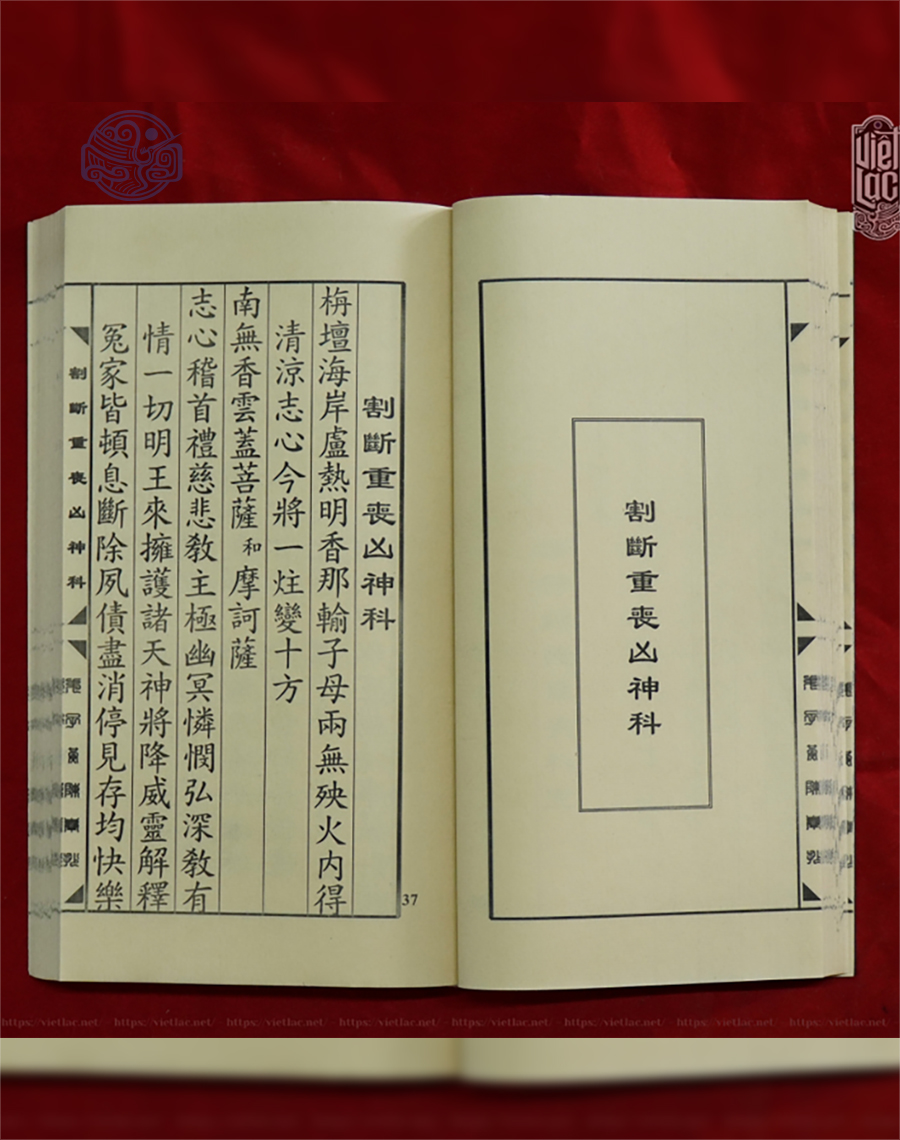 割斷重喪凶神科
割斷重喪凶神科
栴壇海岸盧熱明香那輸子母兩無殃火内得
清涼志心今將一炷變十方
南無香雲蓋菩薩和摩訶薩
志心稽首禮慈悲教主極幽冥憐憫弘深教有
情一切明王來擁護諸天神將降威靈解釋
冤家皆頓息斷除夙債盡消停見存均快樂
割斷重喪凶神科
37
Việt Lạc
https://vietlac.net/ - https://vietlac.net/ - https://vietlac.net/ - https://vietlac.net/ - https://vietlac.net/ - https://vietlac.net/ - https://vietlac.net/ - https://vietlac.net/